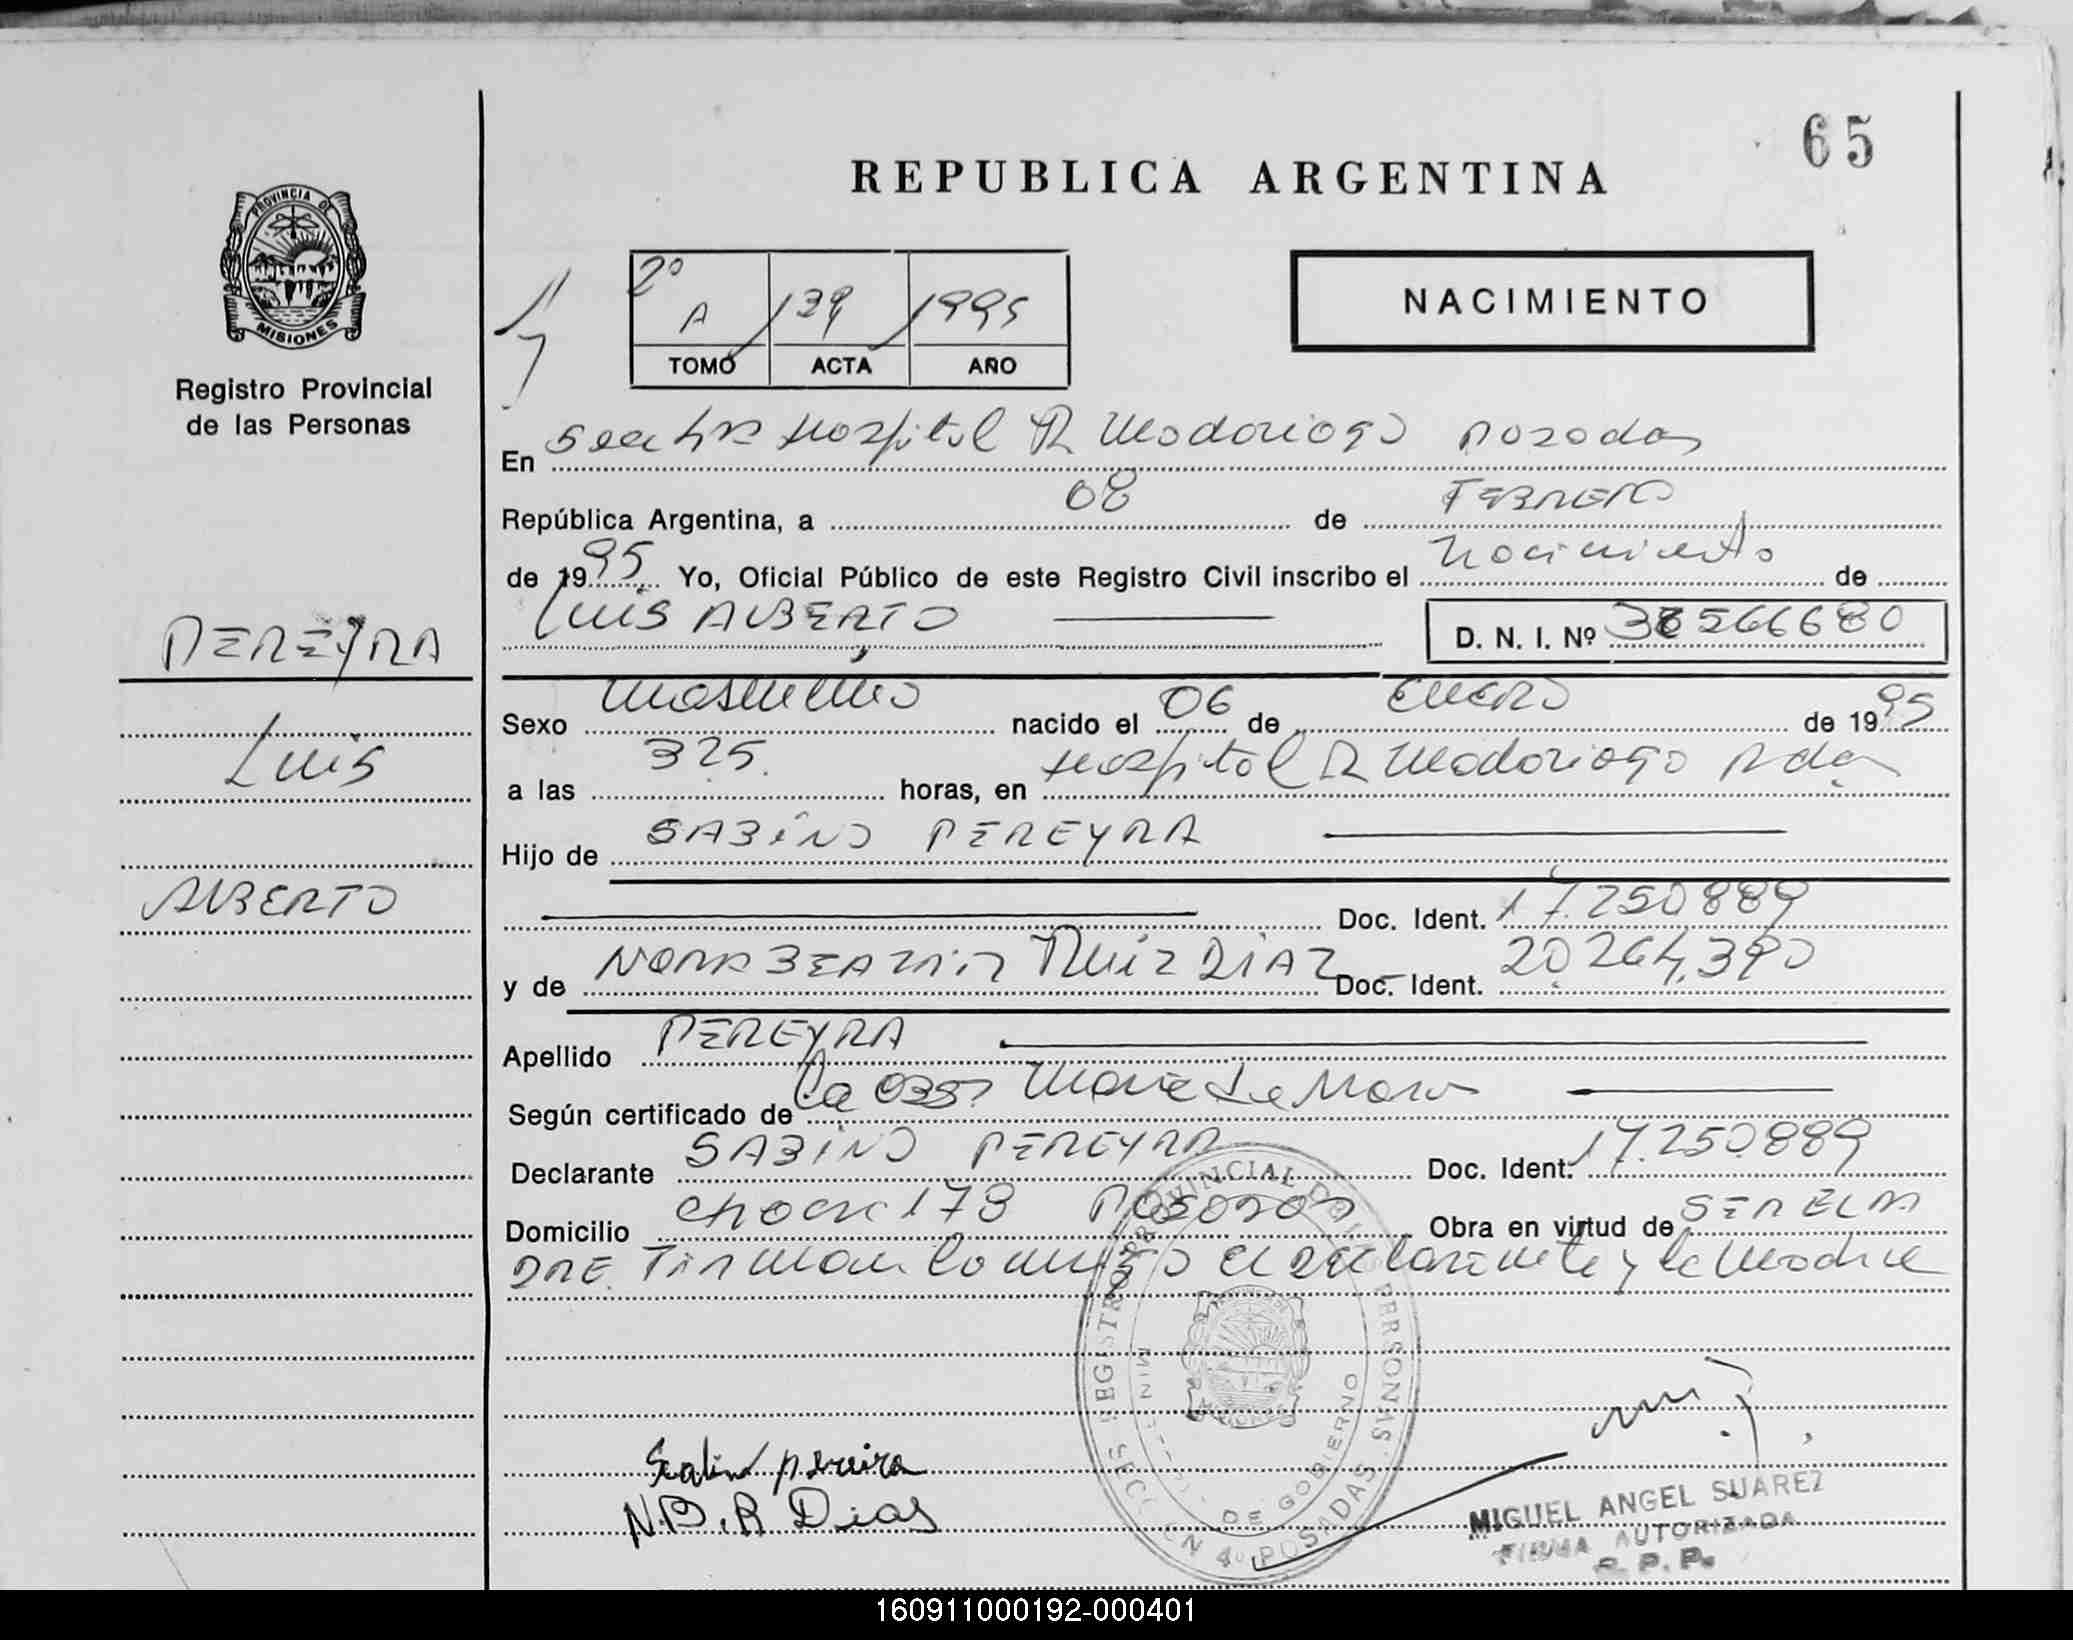 65
REPUBLICA ARGENTINA
PROVINCIA DE
MISIONES
Registro Provincial
de las Personas
NACIMIENTO
2º
A 139 1995
TOMO ACTA AÑO
En Hospital R Madariaga Posadas
República Argentina, a 08 de FEBRERO
de 1995 Yo, Oficial Público de este Registro Civil inscribo el Nacimiento de
LUIS ALBERTO D. N. I. Nº 566680
PEREYRA
Luis
ALBERTO
Sexo Masculino nacido el 06 de ENERO de 1995
a las 325. horas, en Hospital R Madariaga Pdas
Hijo de SABINO PEREYRA
Doc. Ident. 17.250889
y de NORA BEATRIZ RUIZ DIAZ Doc. Ident. 20.264.390
Apellido PEREYRA
Según certificado de La Obst
Declarante SABINO PEREYRA Doc. Ident. 17.250.889
Domicilio 178 POSADAS Obra en virtud de SER EL PA
DRE. Firman conmigo el declarante y la Madre
REGISTRO PROVINCIAL DE LAS PERSONAS
DE GOBIERNO
SECCION 4º POSADAS
Sabino pereira
N.B.R Dias
MIGUEL ANGEL SUAREZ
FIRMA AUTORIZADA
R. P. P.
160911000192-000401